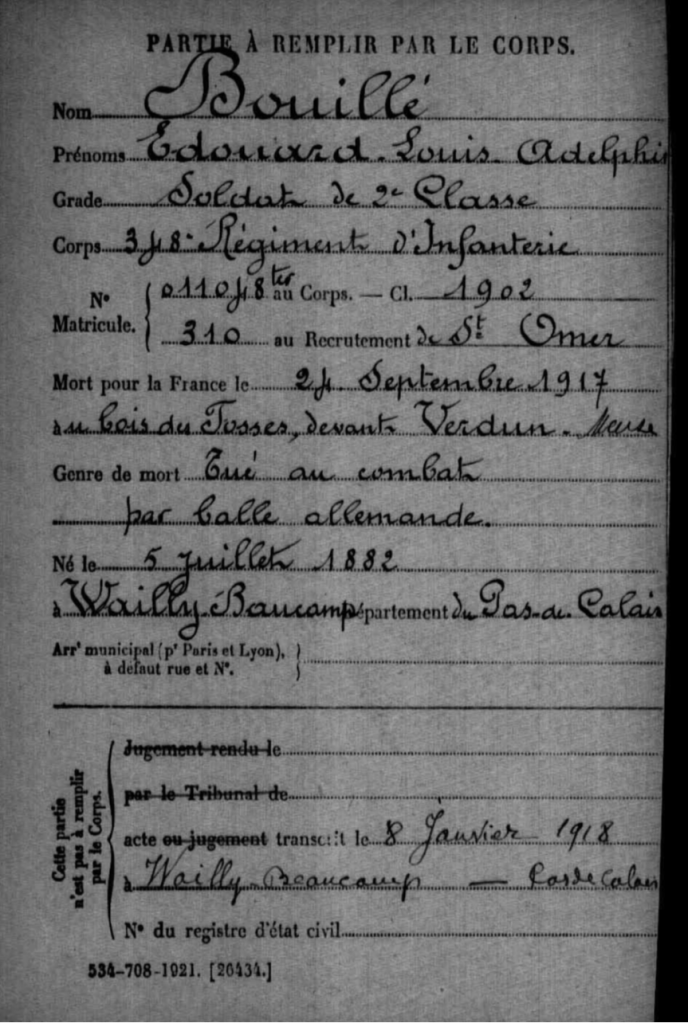 PARTIE À REMPLIR PAR LE CORPS.
Nom Bouillé
Prénoms Edouard Louis Adelphi
Grade Soldat de 2e Classe
Corps 348e Régiment d'Infanterie
No Matricule. { 011048ter au Corps. — Cl. 1902
310 au Recrutement de St Omer
Mort pour la France le 24 Septembre 1917
au bois des Fosses, devant Verdun - Meuse
Genre de mort Tué au combat
par balle allemande.
Né le 5 juillet 1882
à Wailly-Baucamp département du Pas-de-Calais
Arrt municipal (pr Paris et Lyon), à défaut rue et No. }
Cette partie n'est pas à remplir par le Corps. {
Jugement rendu le
par le Tribunal de
acte ou jugement transcrit le 8 Janvier 1918
à Wailly-Beaucamp — Pas de Calais
No du registre d'état civil
534-708-1921. [26434.]